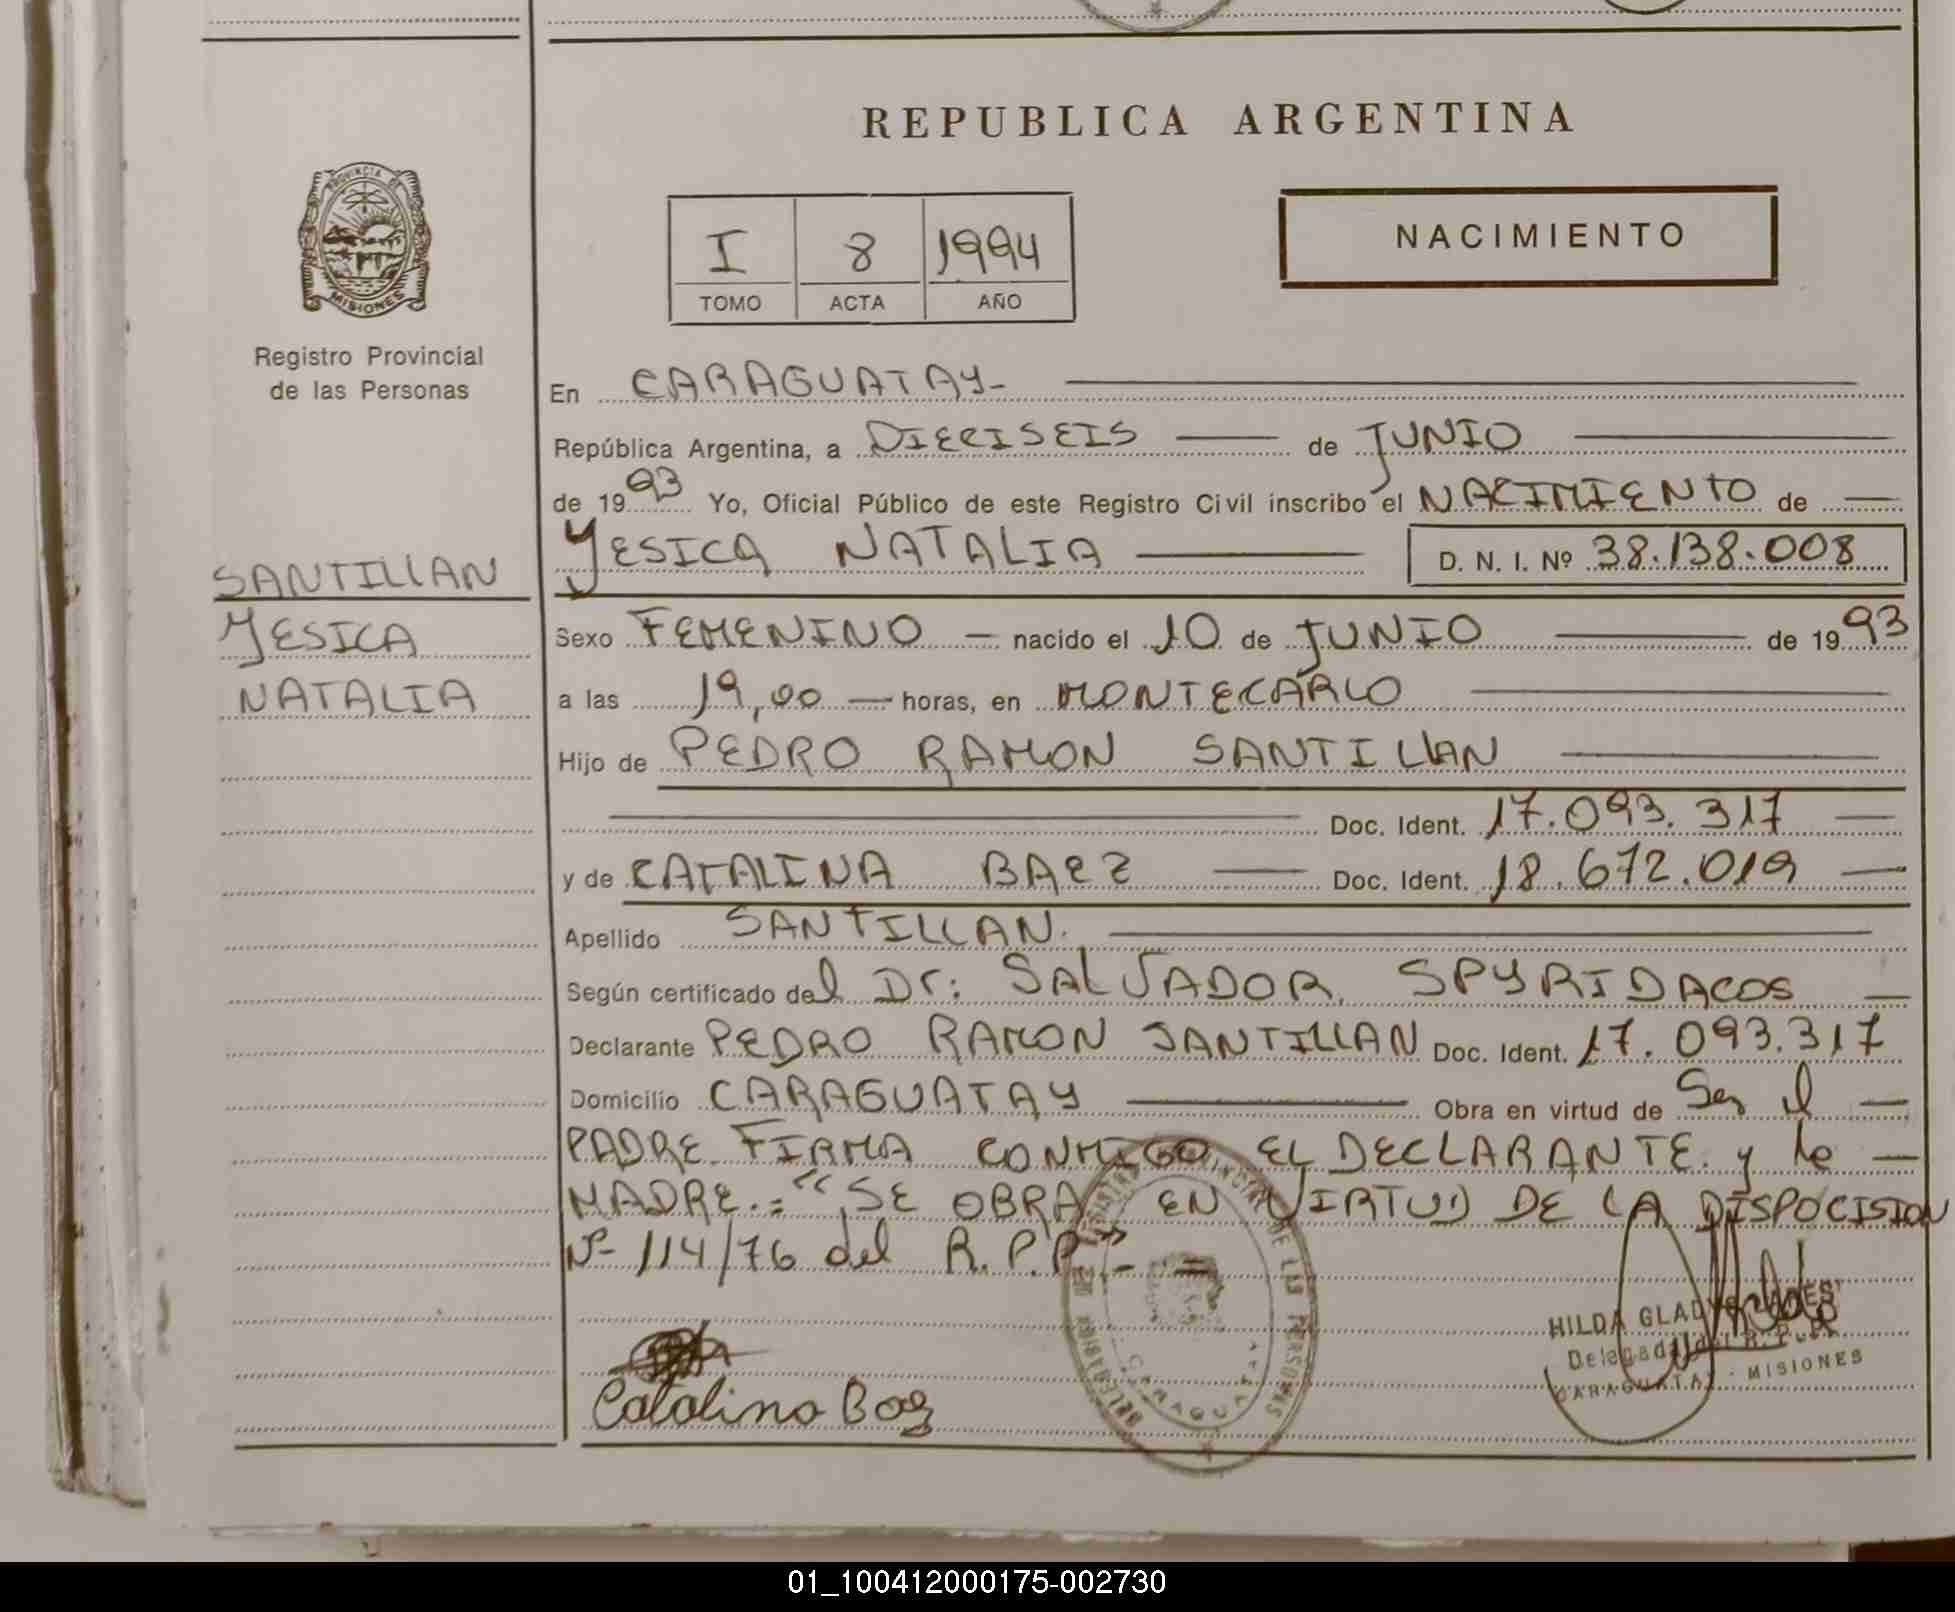 REPUBLICA ARGENTINA
PROVINCIA DE
MISIONES
Registro Provincial
de las Personas
I 8 1994
TOMO ACTA AÑO
NACIMIENTO
En CARAGUATAY-
República Argentina, a DIECISEIS de JUNIO
de 1993 Yo, Oficial Público de este Registro Civil inscribo el NACIMIENTO de
YESICA NATALIA D. N. I. Nº 38.138.008
SANTILLAN
YESICA
NATALIA
Sexo FEMENINO nacido el 10 de JUNIO de 1993
a las 19,00 horas, en MONTECARLO
Hijo de PEDRO RAMON SANTILLAN
Doc. Ident. 17.093.317
y de CATALINA BAEZ Doc. Ident. 18.672.019
Apellido SANTILLAN.
Según certificado del Dr: SALVADOR SPYRIDACOS
Declarante PEDRO RAMON SANTILLAN Doc. Ident. 17.093.317
Domicilio CARAGUATAY Obra en virtud de Ser el
PADRE. FIRMA CONMIGO EL DECLARANTE y la
MADRE.= "SE OBRA EN VIRTUD DE LA DISPOCISION
Nº 114/76 del R.P.P" - =
DE LAS PERSONAS
CARAGUATAY
Catalina Baez
HILDA GLADYS
Delegada del R.
CARAGUATAY - MISIONES
01_100412000175-002730